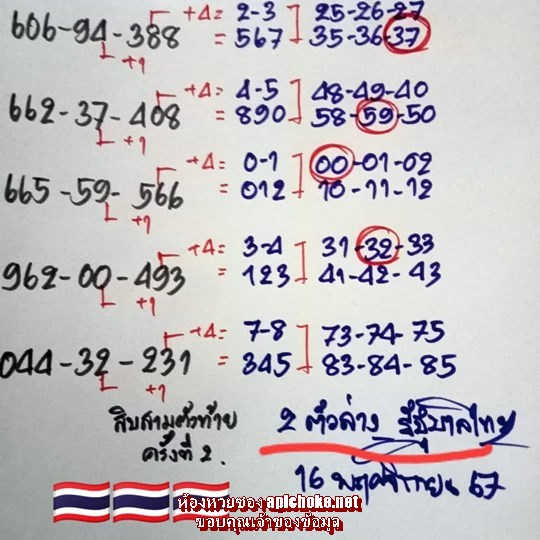 606-94-388 +4= 2-3 25-26-27
+1 = 567 35-36-37
662-37-408 +4= 4-5 48-49-40
+1 = 890 58-59-50
665-59-566 +4= 0-1 00-01-02
+1 = 012 10-11-12
962-00-493 +4= 3-4 31-32-33
+1 = 123 41-42-43
044-32-231 +4= 7-8 73-74-75
+1 = 345 83-84-85
สิบสามตัวท้าย 2 ตัวล่าง รัฐบาลไทย
ครั้งที่ 2.
16 พฤศจิกายน 67
ห้องหวยซอง apichoke.net
ขอบคุณเจ้าของข้อมูล